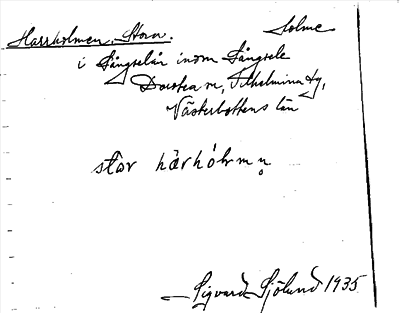 Harrholmen, Stora. Holme
i Långselån inom Långsele
Dorotea sn, Vilhelmina tg,
Västerbottens län
stor härhólmn̥
Sigvard Sjölund 1935